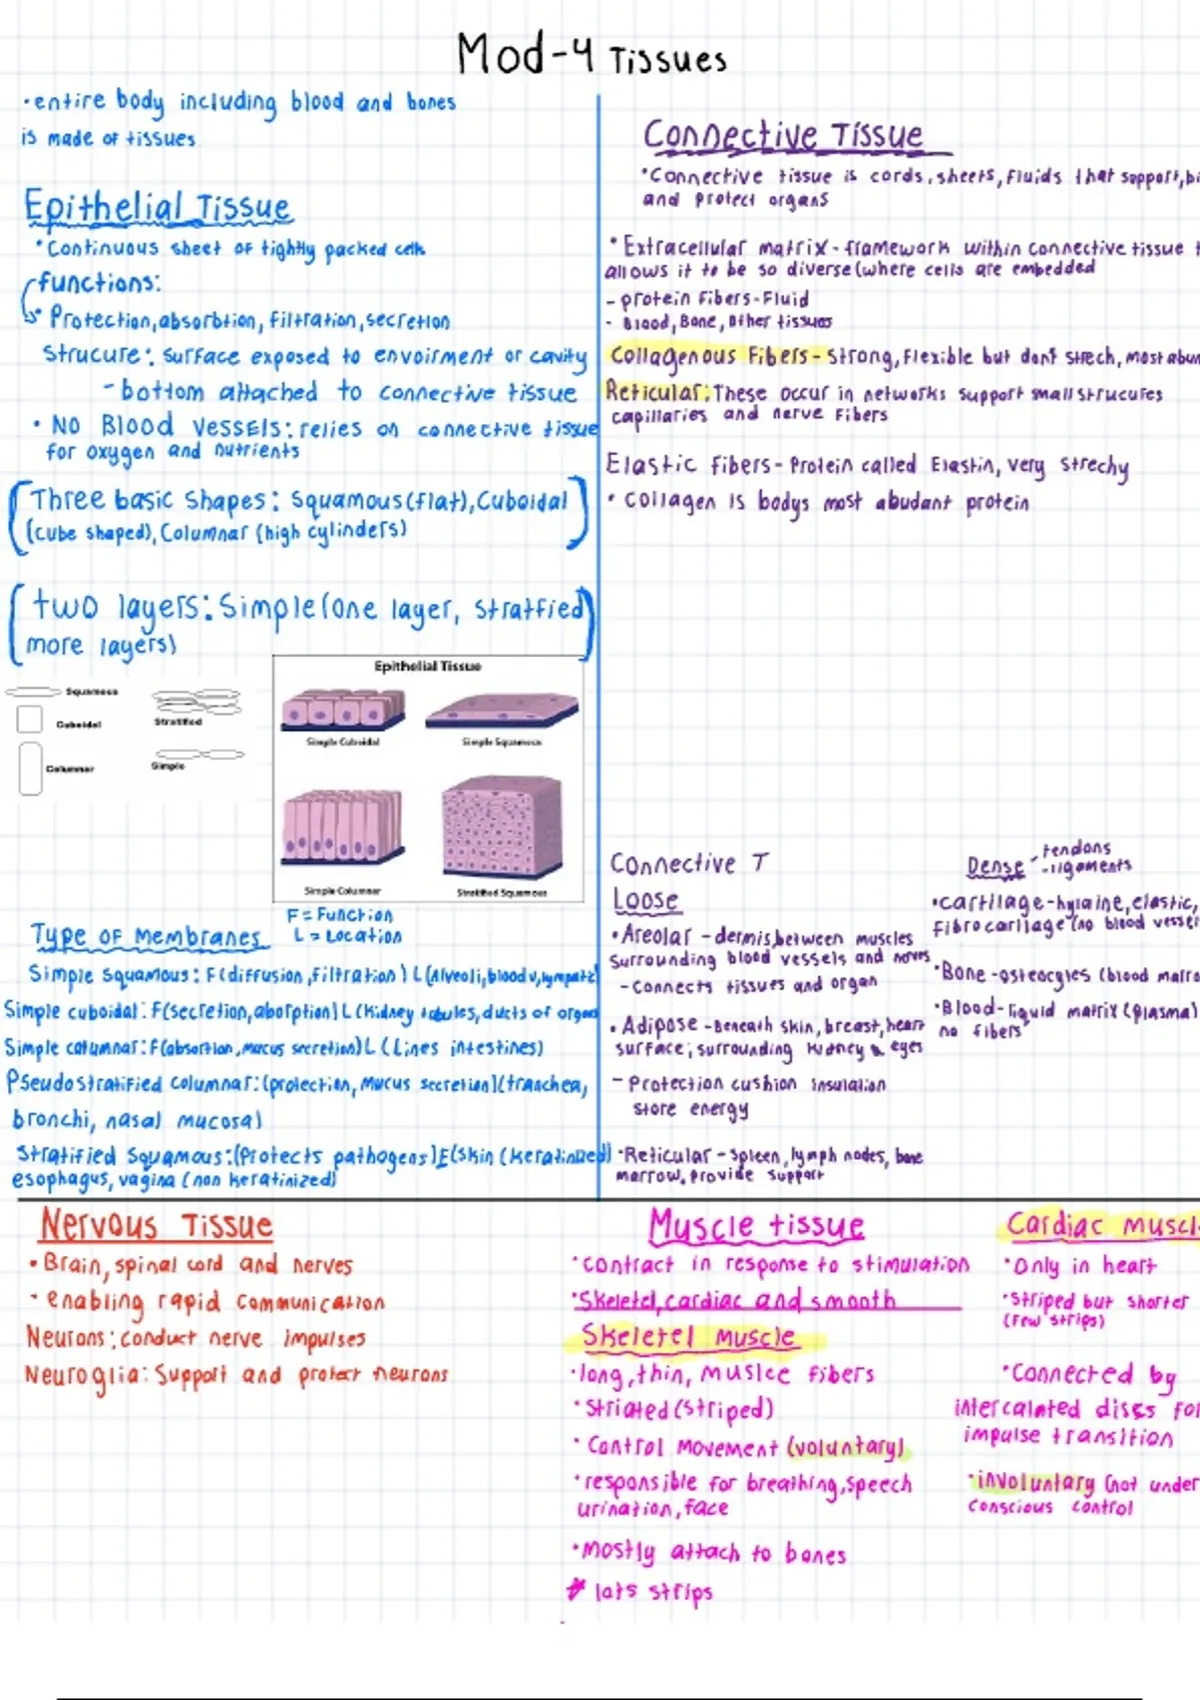 Mod-4 Tissues
•entire body including blood and bones
is made of tissues
Epithelial Tissue
•Continuous sheet of tightly packed cells
functions:
• Protection, absorbtion, filtration, secretion
Strucure: Surface exposed to envoirment or cavity
- bottom attached to connective tissue
• No Blood vessels: relies on connective tissue
for oxygen and nutrients
Three basic shapes: Squamous (flat), Cuboidal
(cube shaped), Columnar (high cylinders)
two layers: Simple (one layer, stratfied
more layers)
Squamous
Cuboidal
Columnar
Stratified
Simple
Epithelial Tissue
Simple Cuboidal
Simple Squamous
Simple Columnar
Stratified Squamous
F = Function
L = Location
Type of Membranes
Simple squamous: F (diffusion, filtration) L (Alveoli, blood v, lympatic)
Simple cuboidal: F(secretion, aborption) L (Kidney tubules, ducts of organ
Simple columnar: F(absortion, mucus secretion) L (Lines intestines)
Pseudostratified columnar: (protection, Mucus secretion) (tranchea,
bronchi, nasal mucosa)
Stratified Squamous: (Protects pathogens) (Skin (Keratinized)
esophagus, vagina (non keratinized)
Connective Tissue
•Connective tissue is cords, sheets, Fluids that support, bi
and protect organs
• Extracellular matrix - framework within connective tissue t
allows it to be so diverse (where cells are embedded
- protein Fibers - Fluid
- Blood, Bone, Other tissues
Collagenous Fibers - Strong, Flexible but dont strech, most abun
Reticular: These occur in networks support small strucures
capillaries and nerve Fibers
Elastic Fibers - Protein called Elastin, very strechy
• Collagen is bodys most abudant protein
Connective T
Loose
• Areolar - dermis, between muscles
surrounding blood vessels and nerves
- Connects tissues and organ
• Adipose - Beneath skin, breast, heart
surface, surrounding kidney & eyes
- Protection cushion insulation
store energy
•Reticular - Spleen, lymph nodes, bone
marrow, provide support
Dense - tendons
- ligaments
•Cartilage - hylaine, elastic,
fibrocarilage (no blood vessel
•Bone - osteocytes (blood marro
•Blood - liquid matrix (plasma)
no fibers
Nervous Tissue
• Brain, spinal cord and nerves
• enabling rapid communication
Neurons: conduct nerve impulses
Neuroglia: Support and protect neurons
Muscle tissue
• contract in response to stimulation
•Skeletel, cardiac and smooth
Skeletel Muscle
•long, thin, muslce fibers
• striated (striped)
• Control movement (voluntary)
•responsible for breathing, speech
urination, face
•mostly attach to bones
* lots strips
Cardiac muscl
•Only in heart
•striped but shorter
(Few strips)
•Connected by
intercalated discs for
impulse transition
•involuntary (not under
conscious control